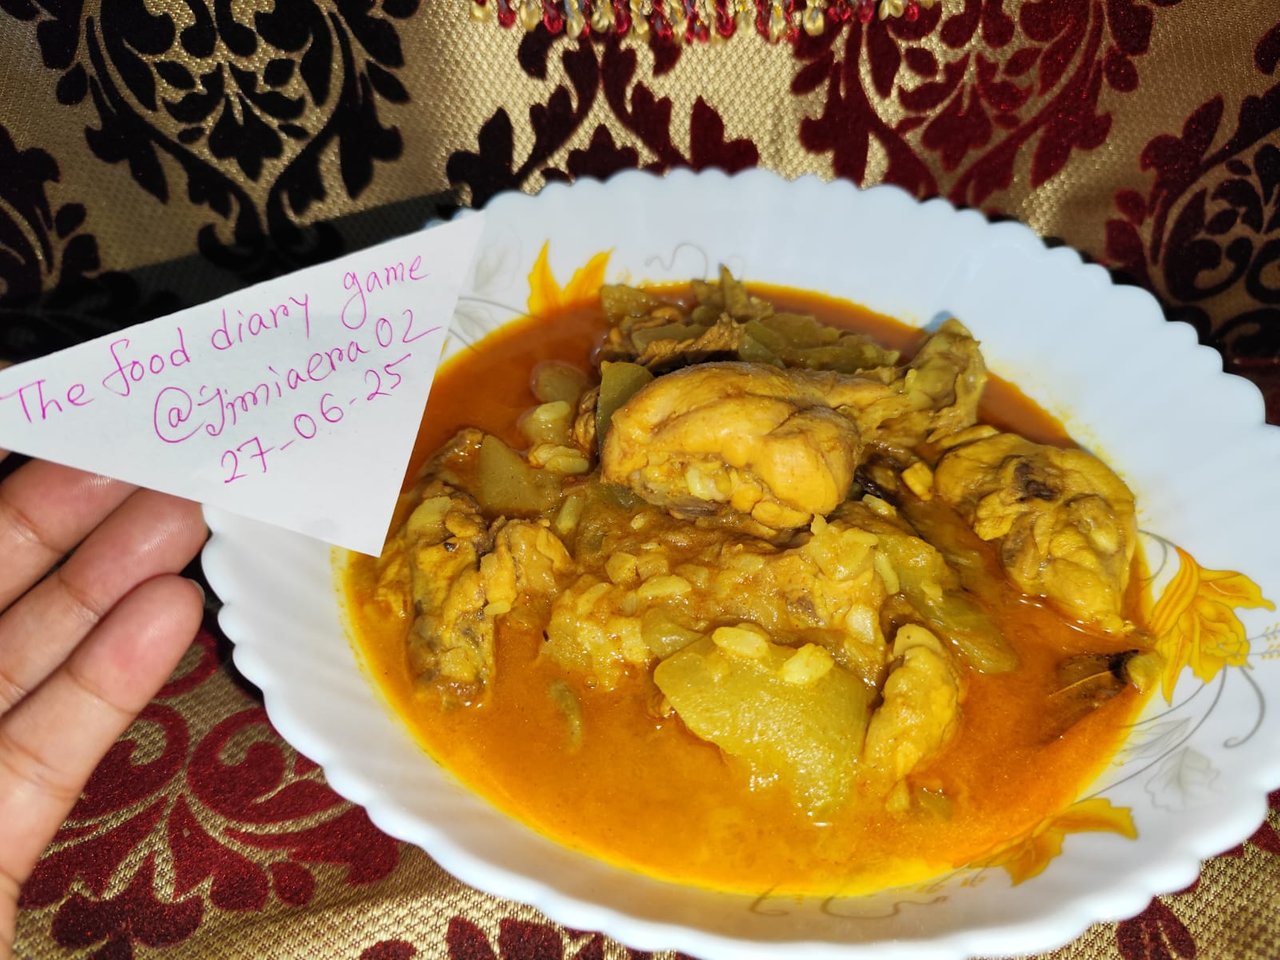 The food diary game
@Jimiaera02
27-06-25